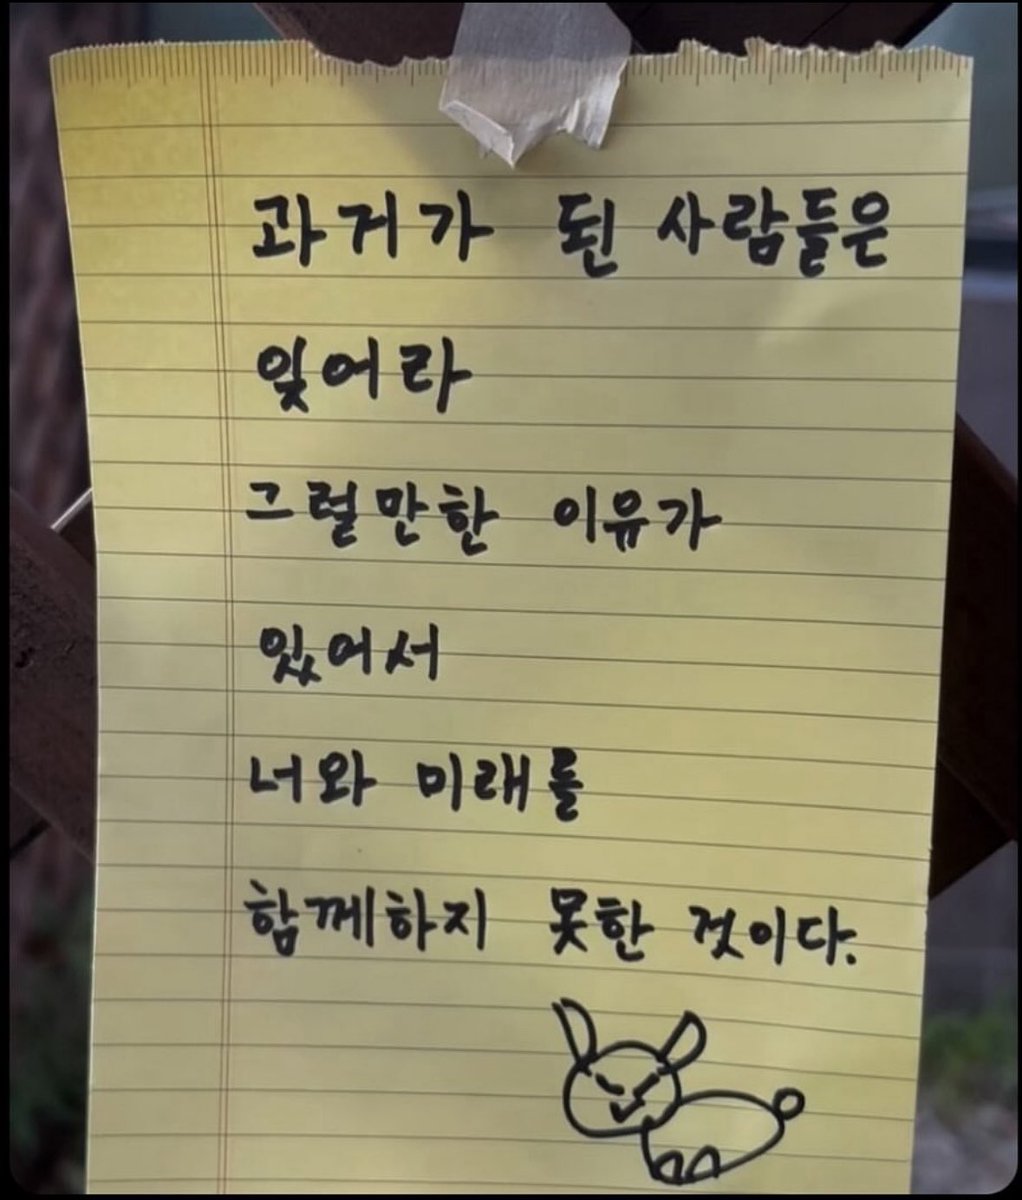 과거가 된 사람들은
잊어라
그럴만한 이유가
있어서
너와 미래를
함께하지 못한 것이다.